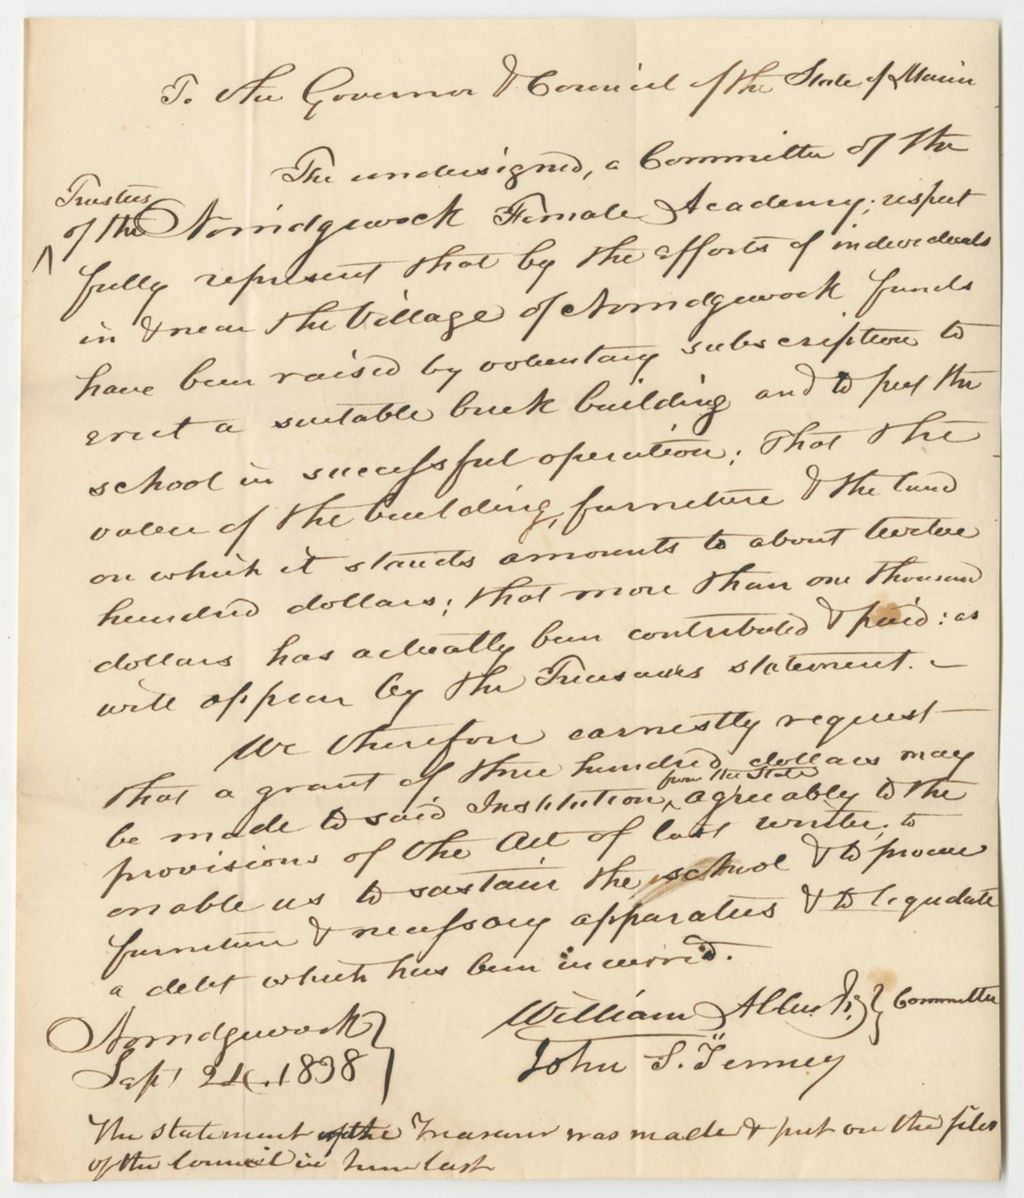 To the Governor & Council of the State of Maine
The undersigned, a Committee of the
Trustees
of the Norridgewock Female Academy; respect
fully represent that by the efforts of individuals
in & near the Village of Norridgewock funds
have been raised by voluntary subscription to
erect a suitable brick building and to put the
school in successful operation; that the
value of the building, furniture & the land
on which it stands amounts to about twelve
hundred dollars; that more than one thousand
dollars has actually been contributed & paid: as
will appear by the Treasurers statement. –
We therefore earnestly request
that a grant of three hundred dollars may
from the State
be made to said Institution, agreeably to the
provisions of the Act of last winter, to
enable us to sustain the school & to procure
furniture & necessary apparatus & to liquidate
a debt which has been incurred.
Norridgewock
Sept 24. 1838
William Allen Jr. } Committee
John S. Tenney "
The statement of the Treasurer was made & put on the files
of the Council in June last